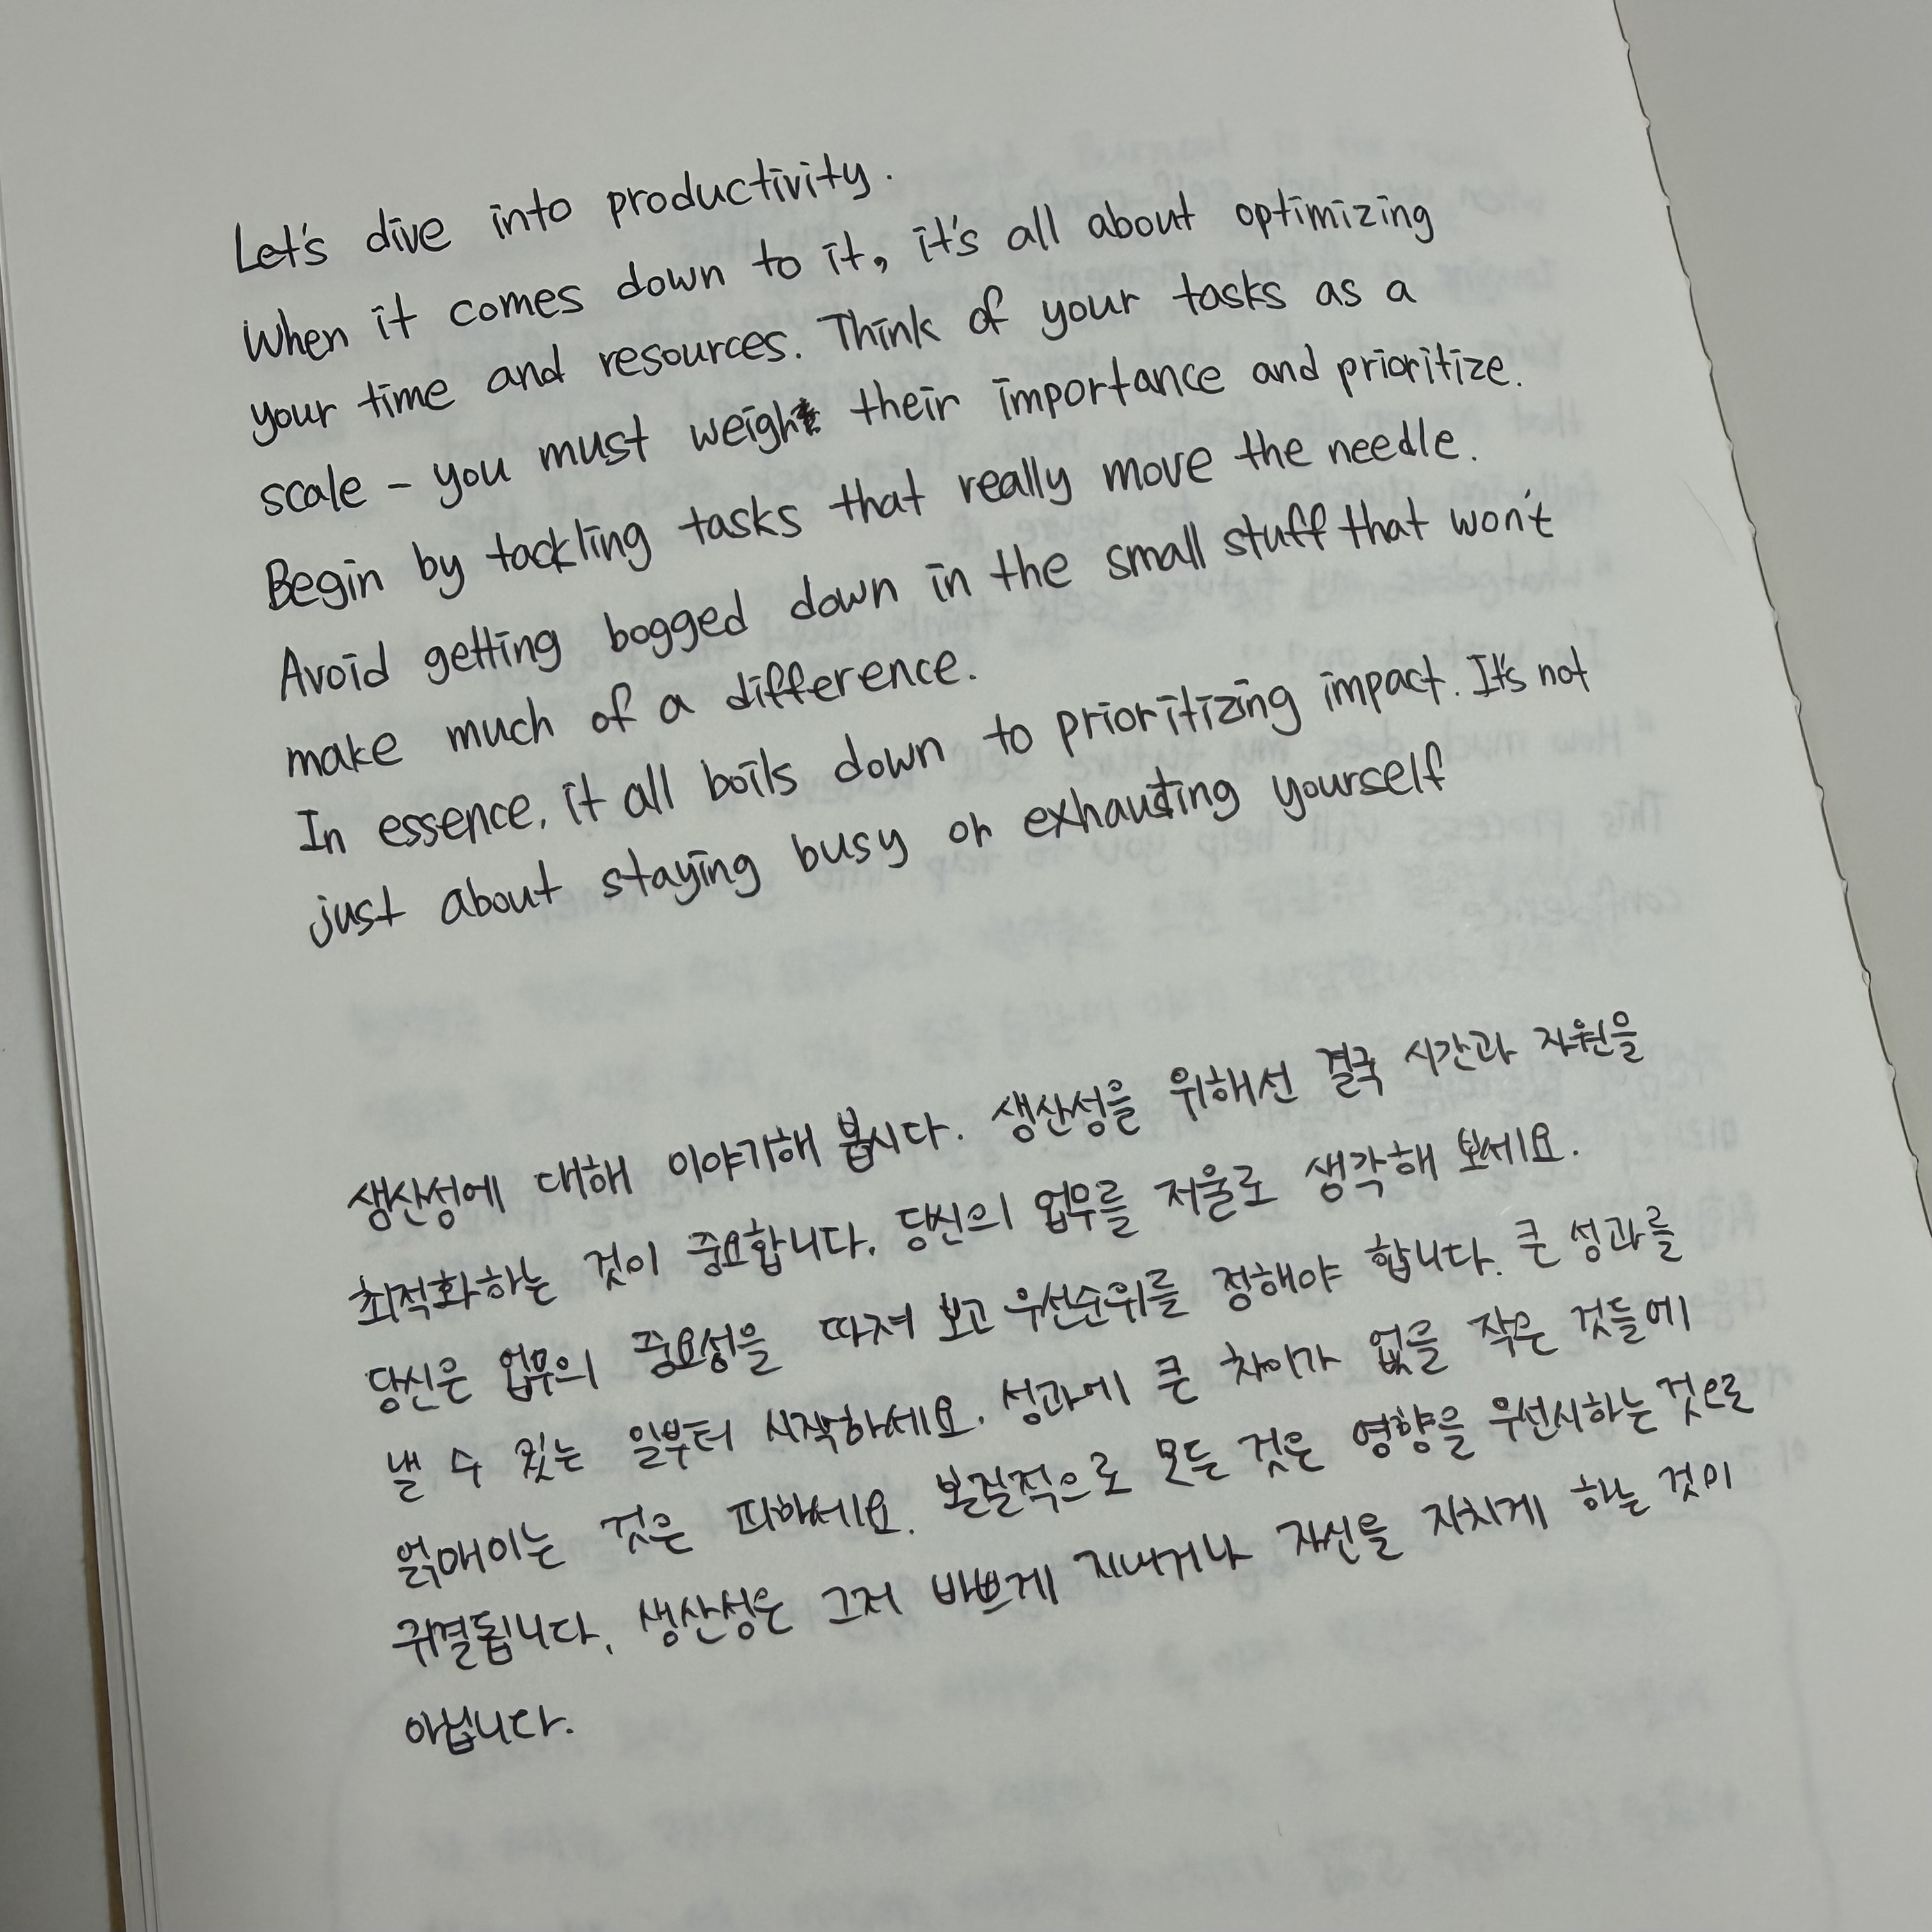 Let's dive into productivity.
When it comes down to it, it's all about optimizing
your time and resources. Think of your tasks as a
scale - you must weigh their importance and prioritize.
Begin by tackling tasks that really move the needle.
Avoid getting bogged down in the small stuff that won't
make much of a difference.
In essence, it all boils down to prioritizing impact. It's not
just about staying busy or exhausting yourself
생산성에 대해 이야기해 봅시다. 생산성을 위해선 결국 시간과 자원을
최적화하는 것이 중요합니다. 당신의 업무를 저울로 생각해 보세요.
당신은 업무의 중요성을 따져 보고 우선순위를 정해야 합니다. 큰 성과를
낼 수 있는 일부터 시작하세요. 성과에 큰 차이가 없을 작은 것들에
얽매이는 것은 피하세요. 본질적으로 모든 것은 영향을 우선시하는 것으로
귀결됩니다. 생산성은 그저 바쁘게 지내거나 자신을 지치게 하는 것이
아닙니다.